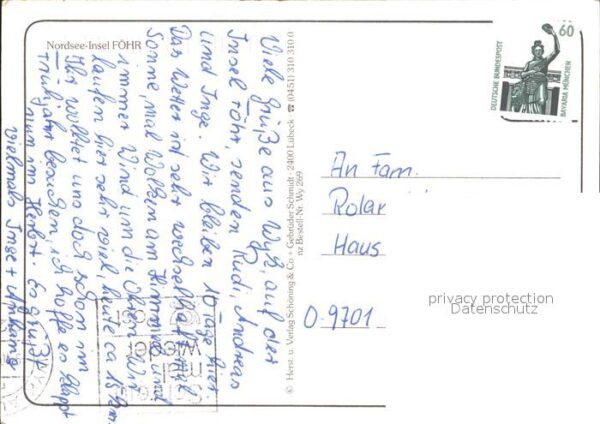 Nordsee-Insel FÖHR
Viele Grüße aus Wyk, auf der
Insel Föhr, senden Rudi, Andreas
und Inge. Wir bleiben 10 Tage hier
Das Wetter ist sehr wechselhaft mal
Sonne mal Wolken am Himmel und
immer Wind um die Ohren. Wir
laufen hier sehr viel, heute ca 15 km.
Ihr wolltet uns doch schon im
Frühjahr besuchen, ich hoffe es klappt
nun im Herbst. Es grüßt
vielmals Inge + Anhang
© Herst. u. Verlag Schöning & Co + Gebrüder Schmidt · 2400 Lübeck · ☎ (0451) 310 310 0
nz Bestell-Nr. Wy 269
60
DEUTSCHE BUNDESPOST
BAVARIA MÜNCHEN
An Fam.
Rolar
Haus
O-9701
privacy protection
Datenschutz
mal
wieder